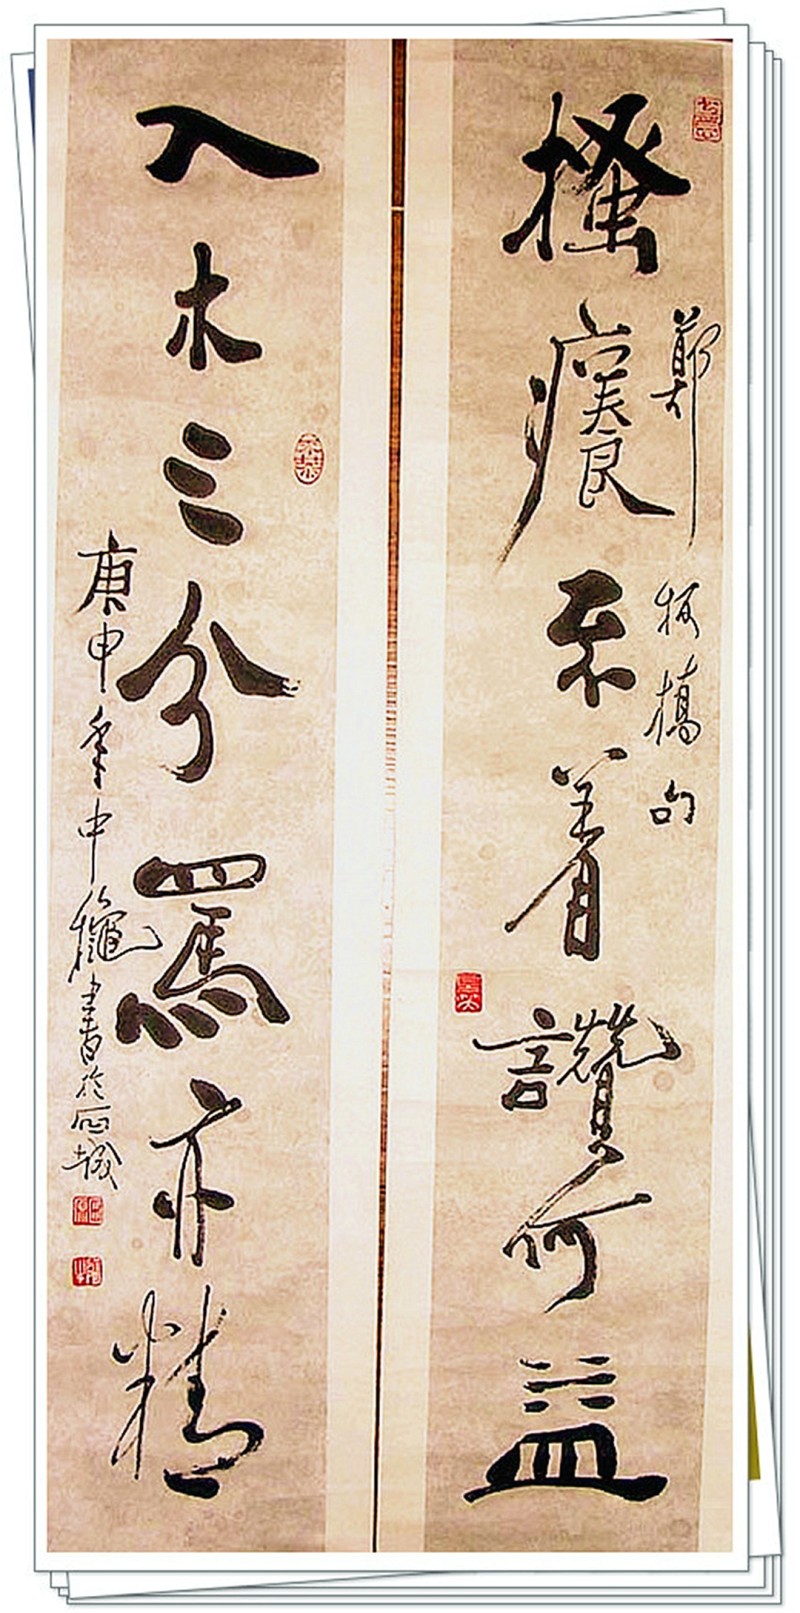 鄭板橋句
搔癢不着讚何益
入木三分罵亦精
庚申年中龝書於石城